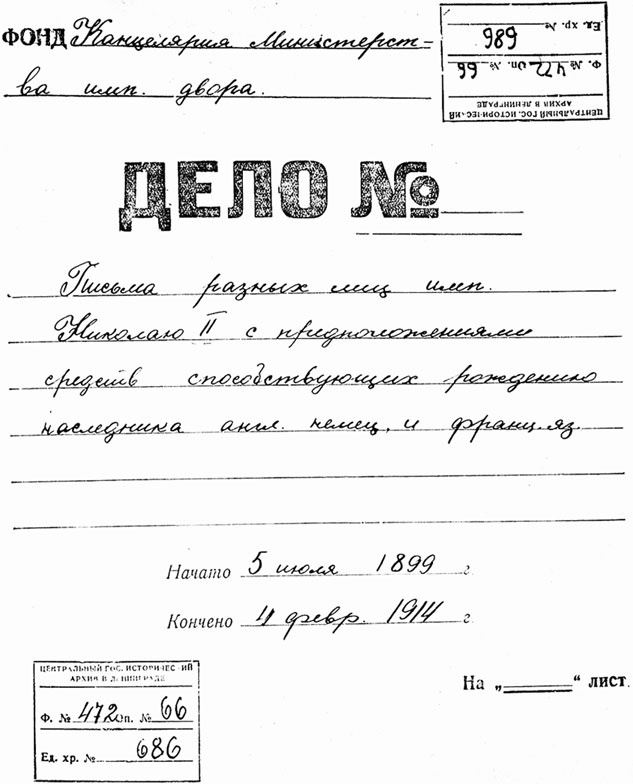 ФОНД Канцелярия Министерст-
ва имп. двора.
ЦЕНТРАЛЬНЫЙ ГОС. ИСТОРИЧЕС-ИЙ
АРХИВ В ЛЕНИНГРАДЕ
Ф. № 472 Оп. № 66
Ед. хр. № 686
ДЕЛО №
Письма разных лиц имп.
Николаю II с предположениями
средств способствующих рождению
наследника англ. немец. и франц. яз.
Начато 5 июля 1899 г
Кончено 4 февр. 1914 г
ЦЕНТРАЛЬНЫЙ ГОС. ИСТОРИЧЕС-ИЙ
АРХИВ В Л НИНГРАДЕ
Ф. № 472 Оп. № 66
Ед. хр. № 686
На „ “ лист.